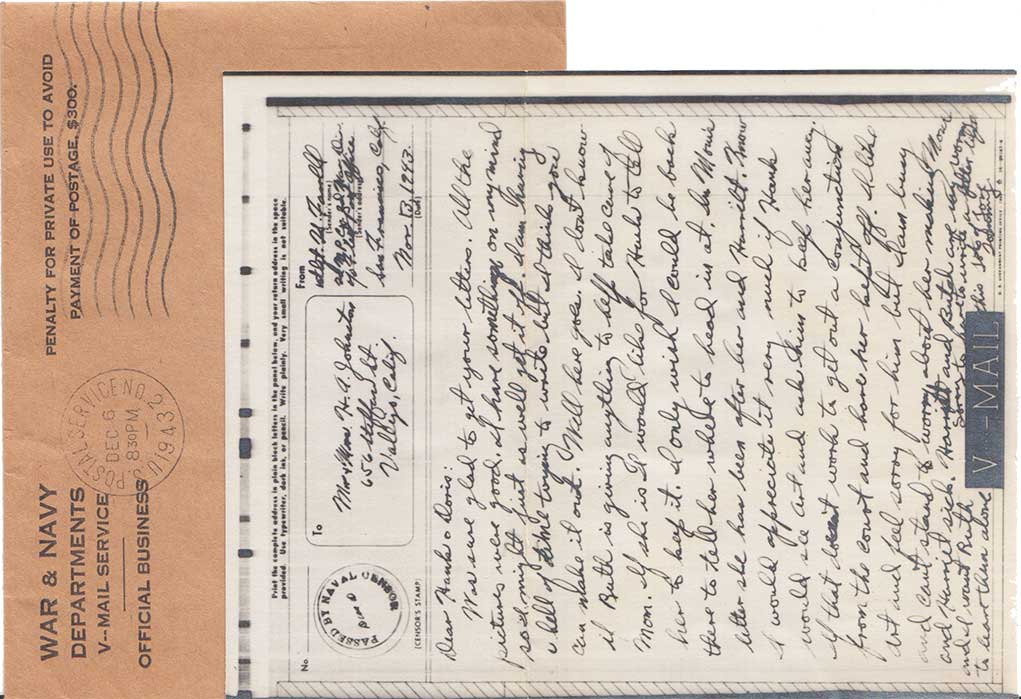 WAR & NAVY
DEPARTMENTS
V-MAIL SERVICE
OFFICIAL BUSINESS
PENALTY FOR PRIVATE USE TO AVOID
PAYMENT OF POSTAGE, $300.
POSTAL SERVICE NO. 2
DEC 6
8 30 PM
1943
Print the complete address in plain block letters in the panel below, and your return address in the space
provided. Use typewriter, dark ink, or pencil. Write plainly. Very small writing is not suitable.
No
PASSED BY NAVAL CENSOR
(CENSOR'S STAMP)
To
Mr & Mrs. H. A. Johnston
656 Steffan St
Vallejo, Calif.
From
(Sender's name)
(Sender's address)
San Francisco, Calif
Nov 13, 1943
(Date)
Dear Hank & Doris:
Was sure glad to get your letters. All the
pictures were good. I have something on my mind
so I might just as well get it off. I am having
a hell of time trying to write but I think you
can make it out. Well here goes. I dont know
if Ruth is giving anything to help take care of
Mom. If she is I would like for Hank to tell
her to keep it. I only wish I could be back
there to tell her where to head in at. In Moms
letter she has been after her and Harriett. Now
I would appreciate it very much if Hank
would see Art and ask him to keep her away.
If that doesnt work to get out a conjunction
from the court and have her kept off. I like
Art and feel sorry for him but I am busy
and cant stand to worry about her making Mom
and Harriett sick. Harriett and Butch are my worry
and I want Ruth
to leave them alone
Sorry to have to write a letter like
this so long
V-MAIL